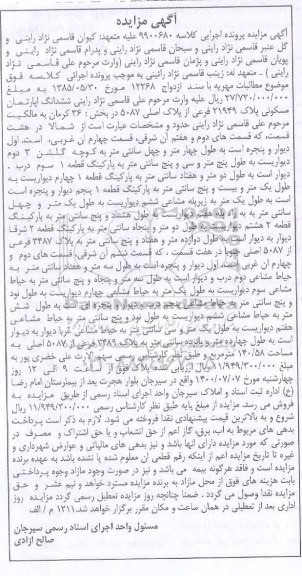 آگهی مزایده
آگهی مزایده پرونده اجرایی کلاسه ۹۹۰۰۶۸۰ علیه متعهد: کیوان قاسمی نژاد راینی و
گل عنبر قاسمی نژاد راینی و سبحان قاسمی نژاد راینی و پدرام قاسمی نژاد راینی و
پویان قاسمی نژاد راینی و پژمان قاسمی نژاد راینی (وارث مرحوم علی قاسمی نژاد
راینی) ـ متعهد له: زینب قاسمی نژاد رائینی به موجب پرونده اجرائی کلاسه فوق
موضوع مطالبات مهریه با سند ازدواج ۱۲۲۶۸ مورخ ۱۳۸۵/۰۵/۳۰ به مبلغ
۲۷/۷۲۰/۰۰۰/۰۰۰ ریال علیه وارث مرحوم علی قاسمی نژاد راینی ششدانگ آپارتمان
مسکونی پلاک ۲۱۹۴۹ فرعی از پلاک اصلی ۵۰۸۷ در بخش: ۳۶ کرمان به مالکیت
مرحوم علی قاسمی نژاد راینی حدود و مشخصات عبارت است از شمالا در هشت
قسمت، که قسمت های دوم و هفتم آن شرقی، قسمت چهارم آن غربی، است، اول
دیوار و پنجره است به طول چهار متر و چهل سانتی متر به کوچه گلشن ۳ دوم
دیواریست به طول پنج متر و سی و پنج سانتی متر به پارکینگ قطعه ۱ سوم درب ـ
دیوار است به طول دو متر و هفتاد سانتی متر به پارکینگ قطعه ۱ چهارم دیواریست به
طول یک متر و بیست و پنج سانتی متر به پارکینگ قطعه ۱ پنجم دیوار و پنجره است
است به طول یک متر به زیرپله مشاعی ششم دیواریست به طول یک متر و چهل
سانتی متر به به زیرپله هفتم دیوار به طول هشتاد و پنج سانتی متر به پارکینگ
قطعه ۲ هشتم دیواریست به طول دو متر و پنجاه سانتی متر به پارکینگ قطعه ۲ شرقا
دیوار به دیوار است به طول دوازده متر و هفتاد و پنج سانتی متر به پلاک ۲۳۸۷ فرعی
از ۵۰۸۷ اصلی جنوبا در هفت قسمت، که قسمت ششم آن شرقی، قسمت های دوم و
چهارم آن غربی است، اول دیوار و پنجره است به طول سه متر و هفتاد سانتی متر به
حیاط مشاعی دوم درب و دیوار است به طول سه متر و پنجاه و پنج سانتی متر به حیاط
مشاعی سوم دیواریست به طول یک متر به حیاط مشاعی چهارم دیواریست به طول نود
و پنج سانتی متر به حیاط مشاعی پنجم دیوار و پنجره است به طول شش
متر به حیاط مشاعی ششم دیواریست به طول نود و پنج سانتی متر به حیاط مشاعی
هفتم دیواریست به طول یک متر و سی سانتی متر به حیاط مشاعی غربا دیوار به دیوار
است به طول چهارده متر و پانزده سانتی متر به پلاک ۲۳۸۱ فرعی از ۵۰۸۷ اصلی به
مساحت ۱۴۰/۵۸ مترمربع و طبق نظر کارشناس رسمی علی خضری پور به
مبلغ ۱۱/۹۴۹/۳۰۰/۰۰۰ ریال ارزیابی شده پلاک فوق از ساعت ۹ الی ۱۲ روز
چهارشنبه مورخ ۱۴۰۰/۰۷/۰۷ واقع در سیرجان بلوار هجرت بعد از بیمارستان امام رضا
(ع) اداره ثبت اسناد و املاک سیرجان واحد اجرای اسناد رسمی از طریق مزایده به
فروش می رسد. مزایده از مبلغ پایه طبق نظر کارشناس رسمی ۱۱/۹۴۹/۳۰۰/۰۰۰ ریال
شروع و به بالاترین قیمت پیشنهادی نقدا فروخته می شود. لازم به ذکر است پرداخت
بدهی های مربوط به آب، برق، گاز اعم از حق انشعاب و یا حق اشتراک و مصرف در
صورتی که مورد مزایده دارای آنها باشد و نیز بدهی های مالیاتی و عوارض شهرداری و
غیره تا تاریخ مزایده اعم از اینکه رقم قطعی آن معلوم شده یا نشده باشد به عهده برنده
مزایده است و فاقد هرگونه بیمه می باشد و نیز در صورت وجود مازاد وجوه پرداختی
بابت هزینه های فوق از محل مازاد به برنده مزایده مسترد خواهد و نیم عشر و حق
مزایده نقدا وصول می گردد. ضمنا چنانچه روز مزایده تعطیل رسمی گردد مزایده روز
اداری بعد از تعطیلی در همان ساعت و مکان مقرر برگزار خواهد شد. ۱۲۱۱ م/الف
مسئول واحد اجرای اسناد رسمی سیرجان
صالح آزادی